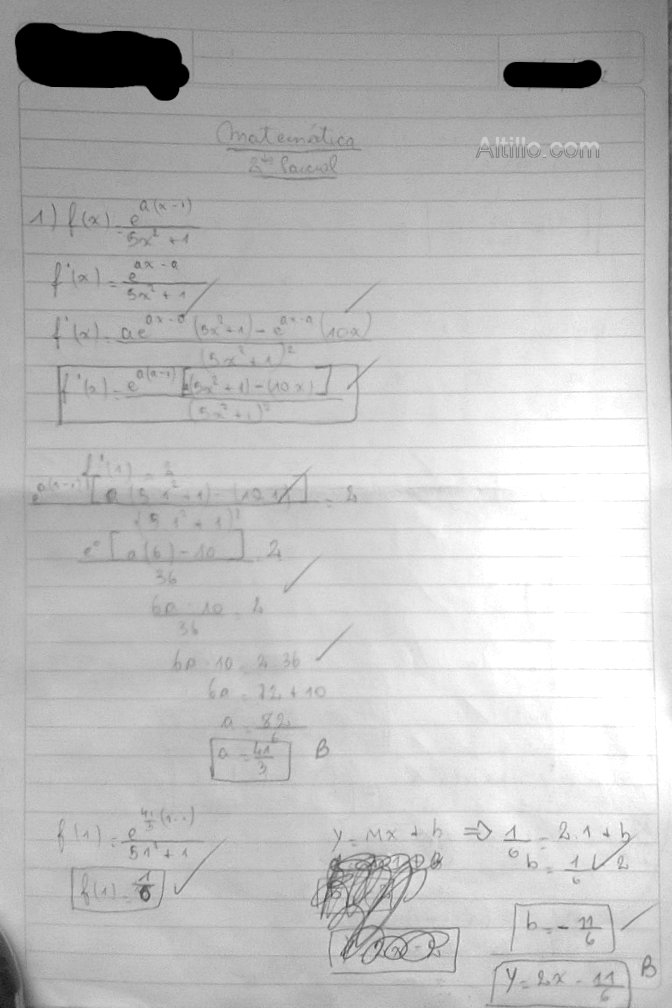 Matemática
Altillo.com
2do Parcial
1) f(x) = e^{a(x-1)} / 5x² + 1
f'(x) = e^{ax-a} / 5x² + 1
f'(x) = ae^{ax-a} (5x²+1) - e^{ax-a} (10x) / (5x²+1)²
f'(x) = e^{a(x-1)} [a(5x²+1) - (10x)] / (5x²+1)²
f'(1) = 2
e^{a(1-1)} [a(5 1²+1) - (10 1)] / (5 1²+1)² = 2
e⁰ [a(6) - 10] / 36 = 2
6a - 10 / 36 = 2
6a - 10 = 2 . 36
6a = 72 + 10
a = 82 / 6
a = 41/3 B
f(1) = e^{41/3 (1-1)} / 5 1² + 1
f(1) = 1/6
y = mx + b ⇒ 1/6 = 2.1 + b
b = 1/6 - 2
b = - 11/6
y = 2x - 11/6 B